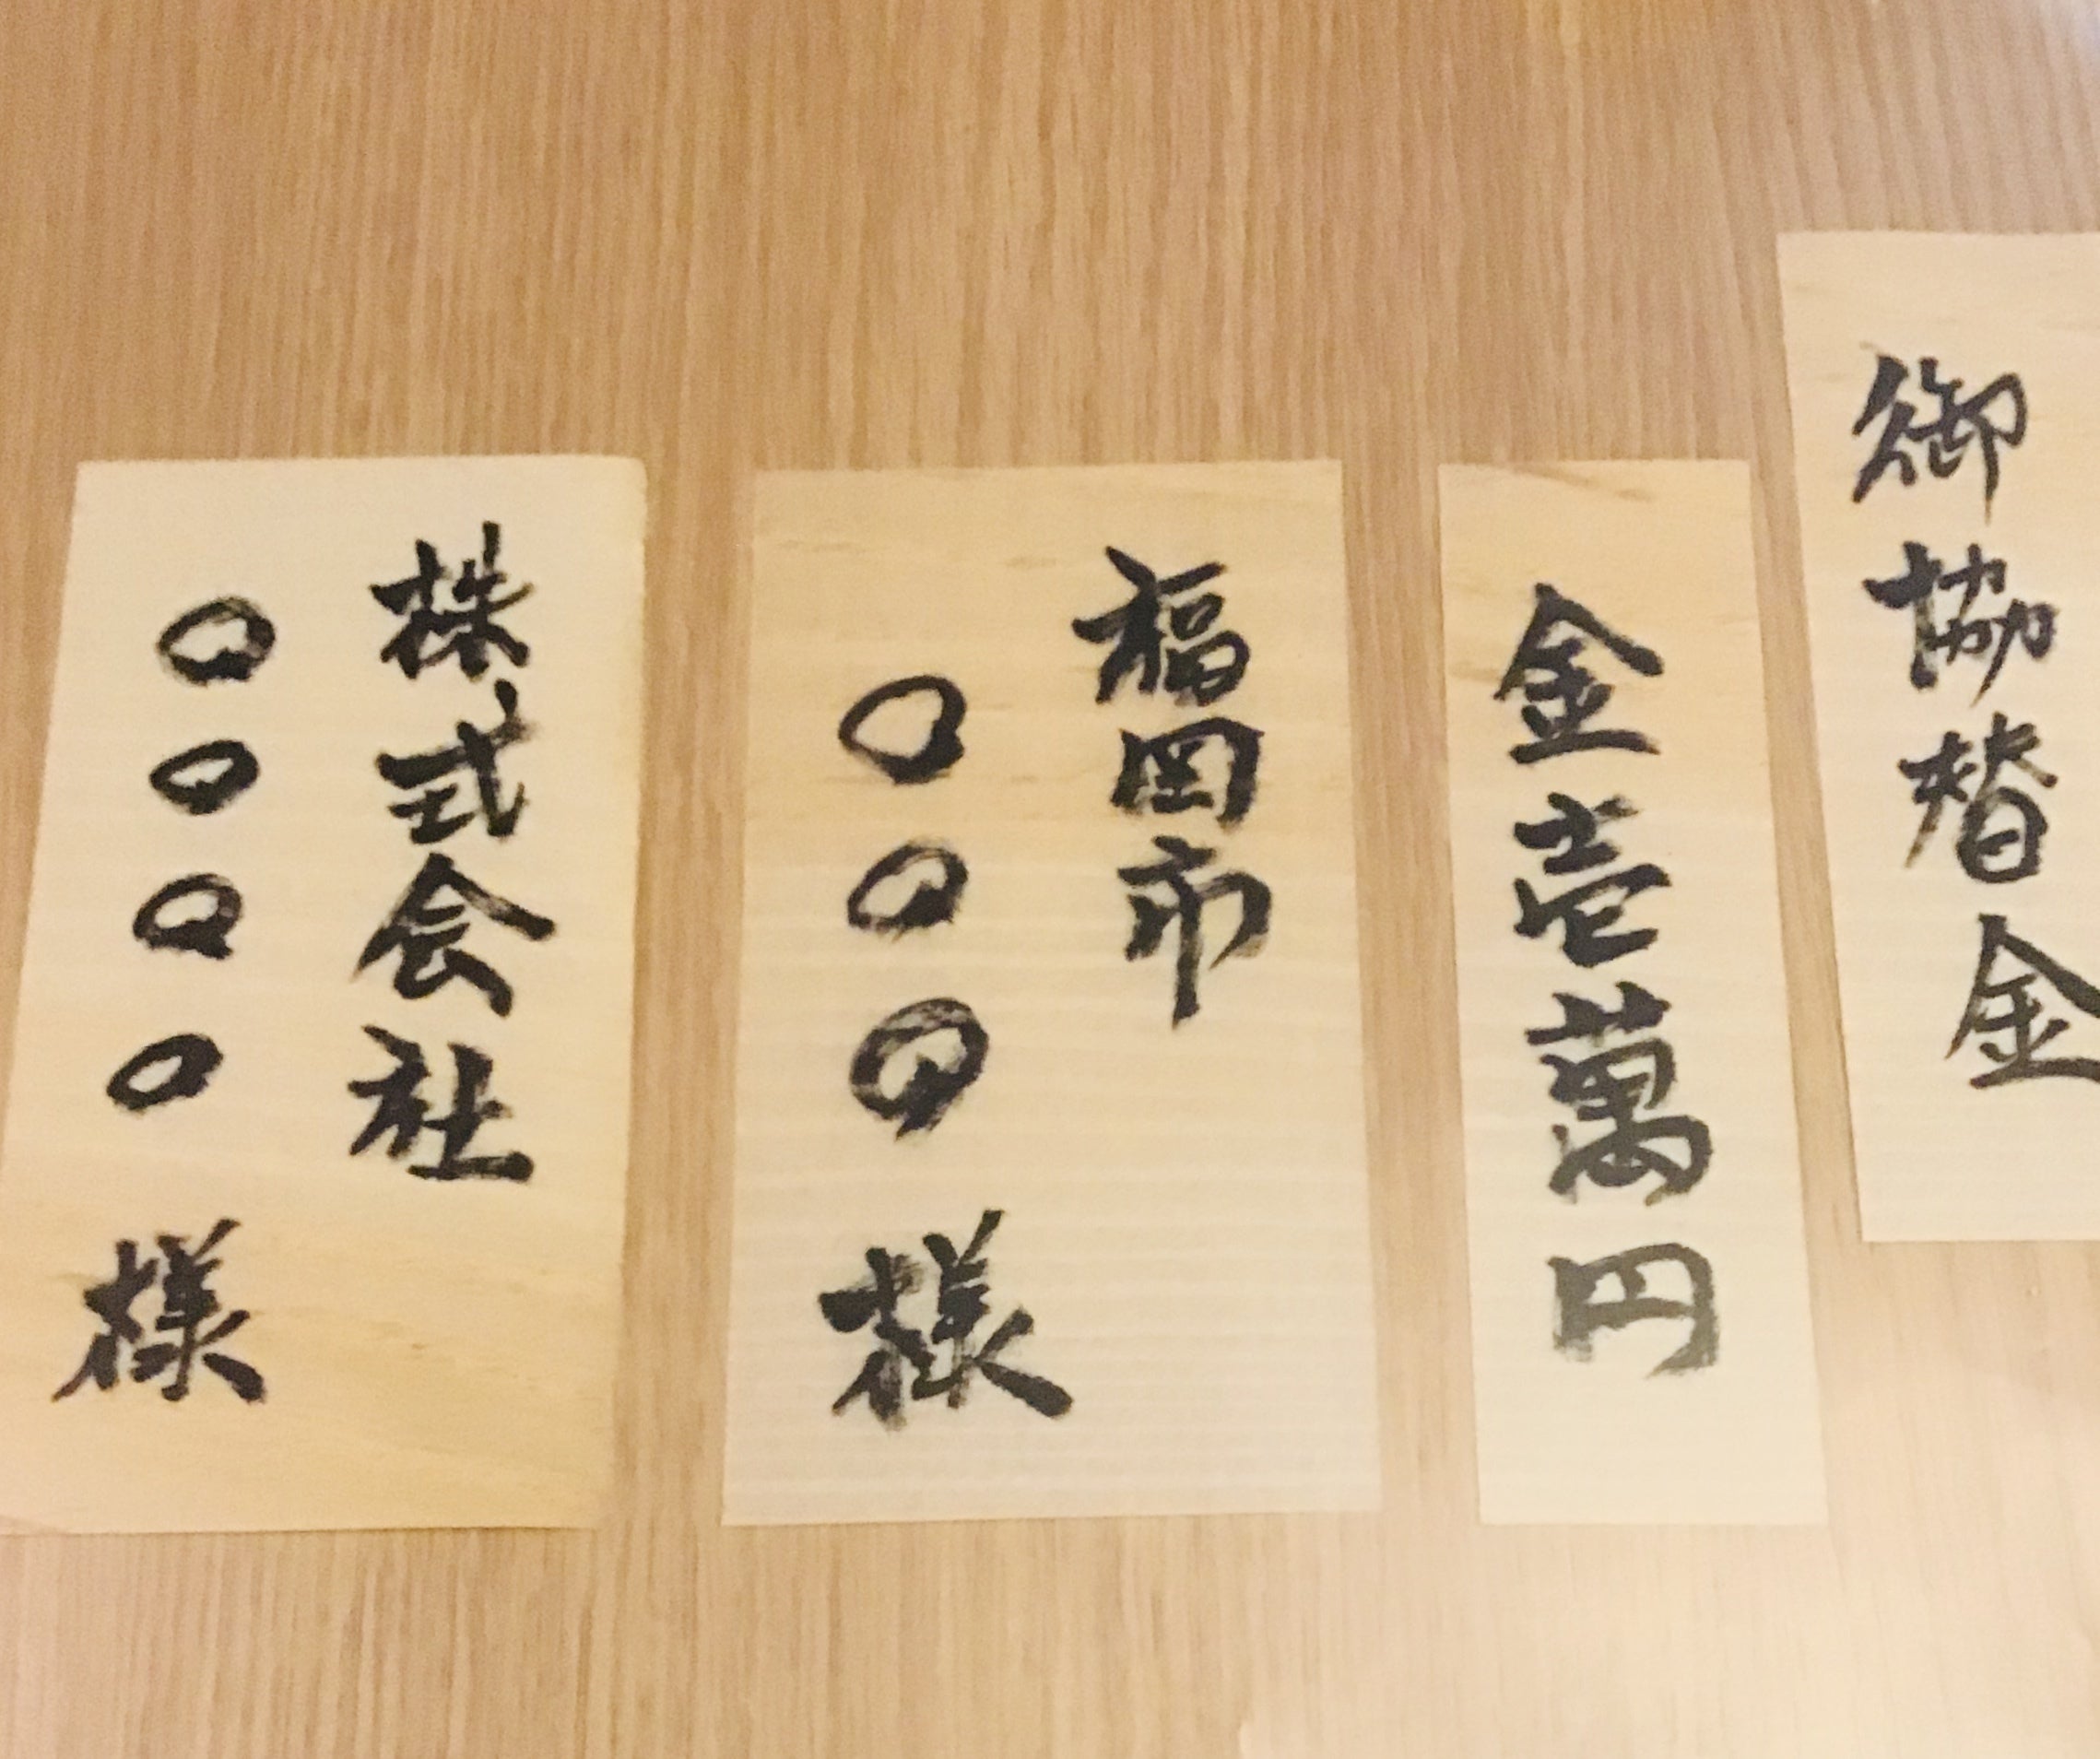 御協賛金
金壱萬円
福岡市
〇〇〇様
株式会社
〇〇〇〇様